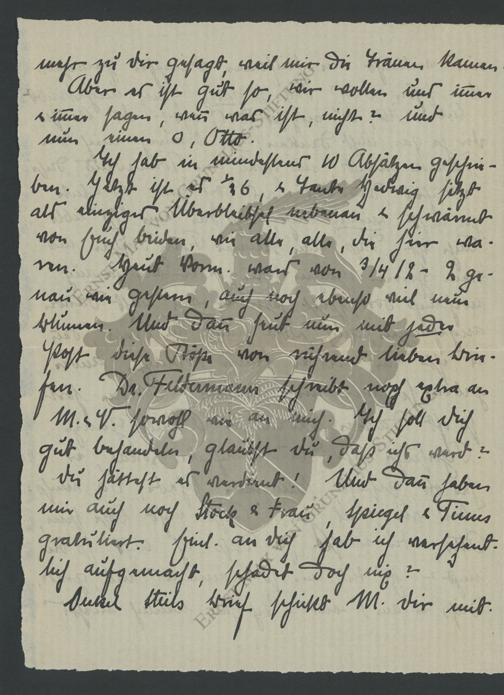 mehr zu dir gesagt, weil mir die Tränen kamen.
Aber es ist gut so, wir wollen uns immer
& immer sagen, wenn was ist, nicht? und
nun einen O, Otto.
Ich hab in mindestens 10 Absätzen geschrie-
ben. Jetzt ist es 1/2 6, & Tante Hedwig sitzt
als einziges Überbleibsel nebenan & schwärmt
von Euch beiden, wie alle, alle, die hier wa-
ren. Heut Vorm. wars von 3/4 12 - 2 ge-
nau wie gestern, auch noch ebenso viel neue
Blumen. Und dann heut nun mit jeder
Post diese Stöße von rührend lieben Brie-
fen. Dr. Feldermann schreibt noch extra an
M. & V. sowohl wie an mich. Ich soll dich
gut behandeln, glaubst du, daß ichs werd?
Du hättest es verdient! Und dann haben
mir auch noch Stock & Frau, Spiegel & Timms
gratuliert. Einl. an dich hab ich versehent-
lich aufgemacht, schadet doch nix?
Onkel Brief schickt M. dir mit.
ERNST
STIFTUNG